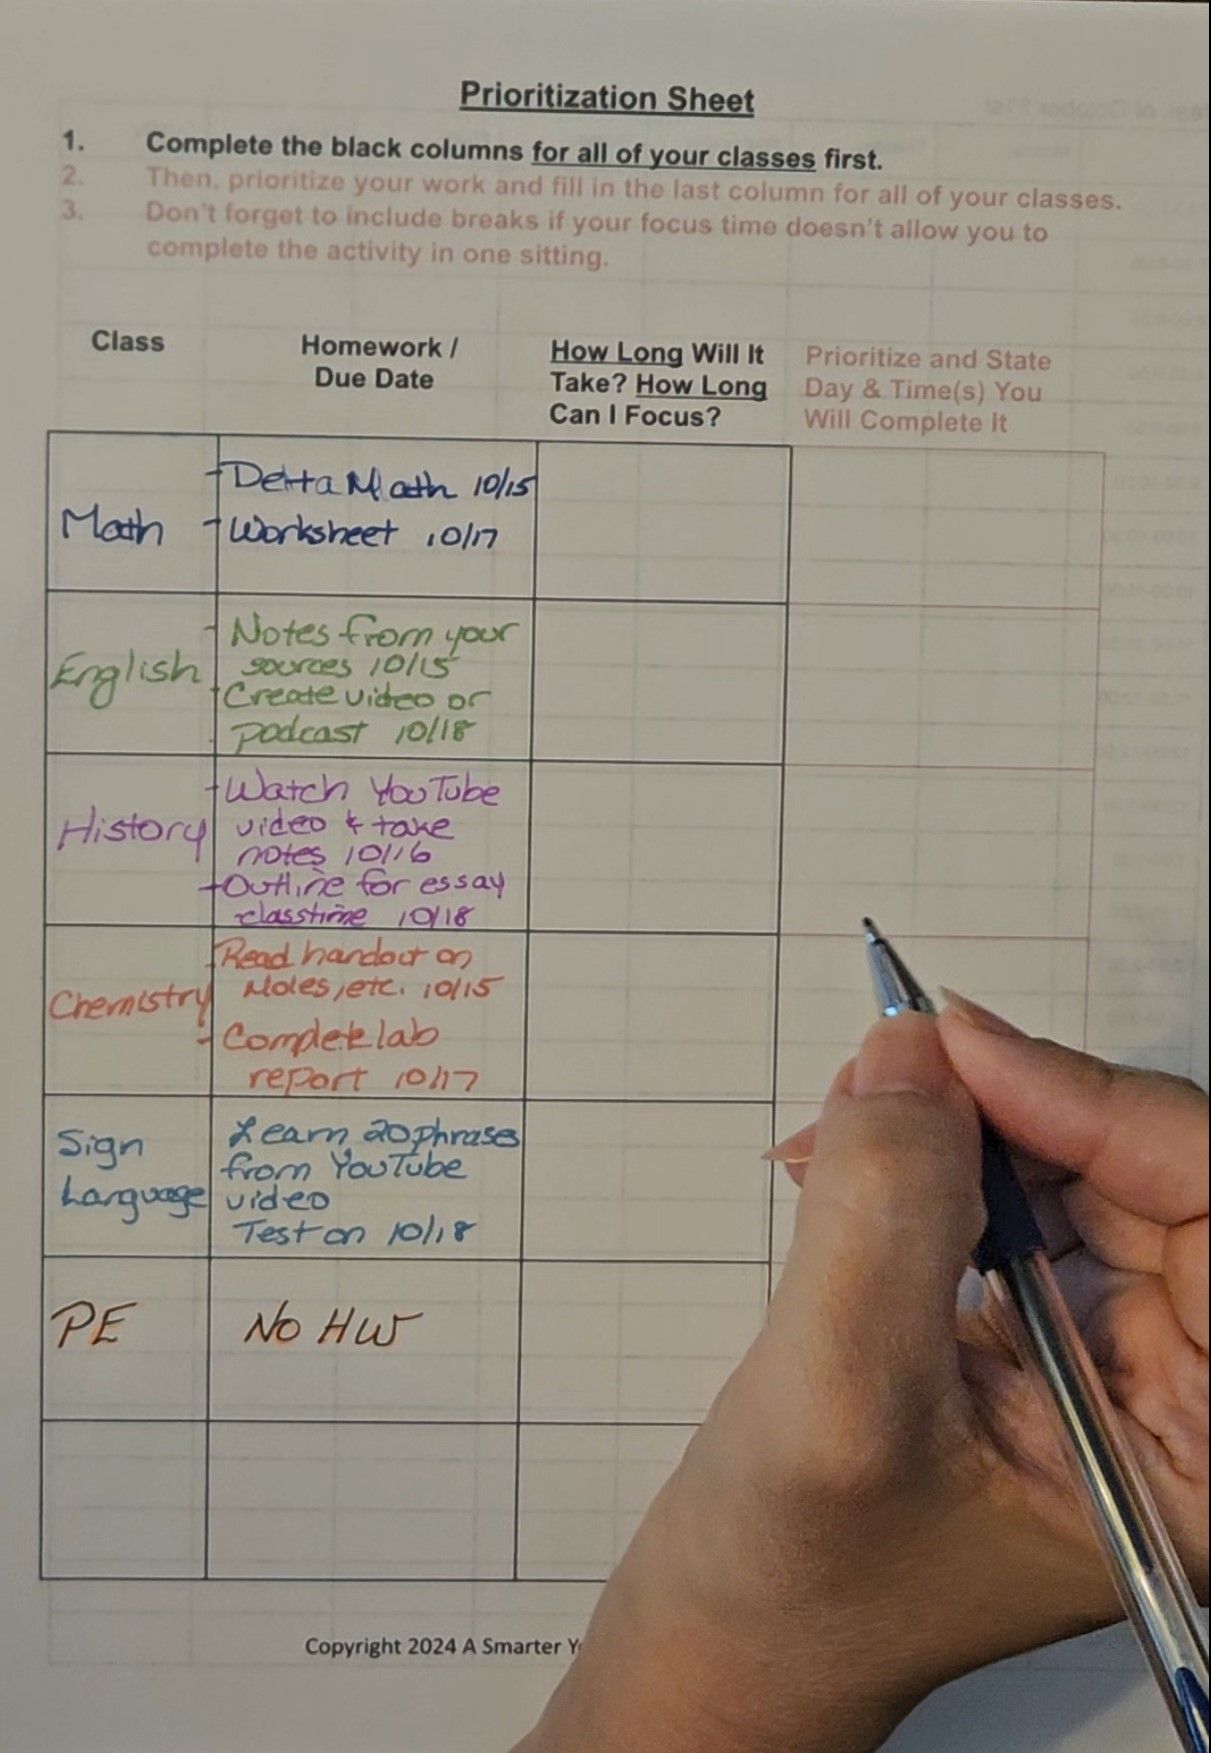 Prioritization Sheet
1. Complete the black columns for all of your classes first.
2. Then, prioritize your work and fill in the last column for all of your classes.
3. Don't forget to include breaks if your focus time doesn't allow you to
complete the activity in one sitting.
Class
Homework /
Due Date
How Long Will It
Take? How Long
Can I Focus?
Prioritize and State
Day & Time(s) You
Will Complete It
Math
- Delta Math 10/15
- Worksheet 10/17
English
- Notes from your
sources 10/15
- Create video or
podcast 10/18
History
- Watch YouTube
video & take
notes 10/16
- Outline for essay
classtime 10/18
Chemistry
- Read handout on
Moles, etc. 10/15
- Complete lab
report 10/17
Sign
Language
Learn 20 phrases
from YouTube
video
Test on 10/18
PE
No HW
Copyright 2024 A Smarter